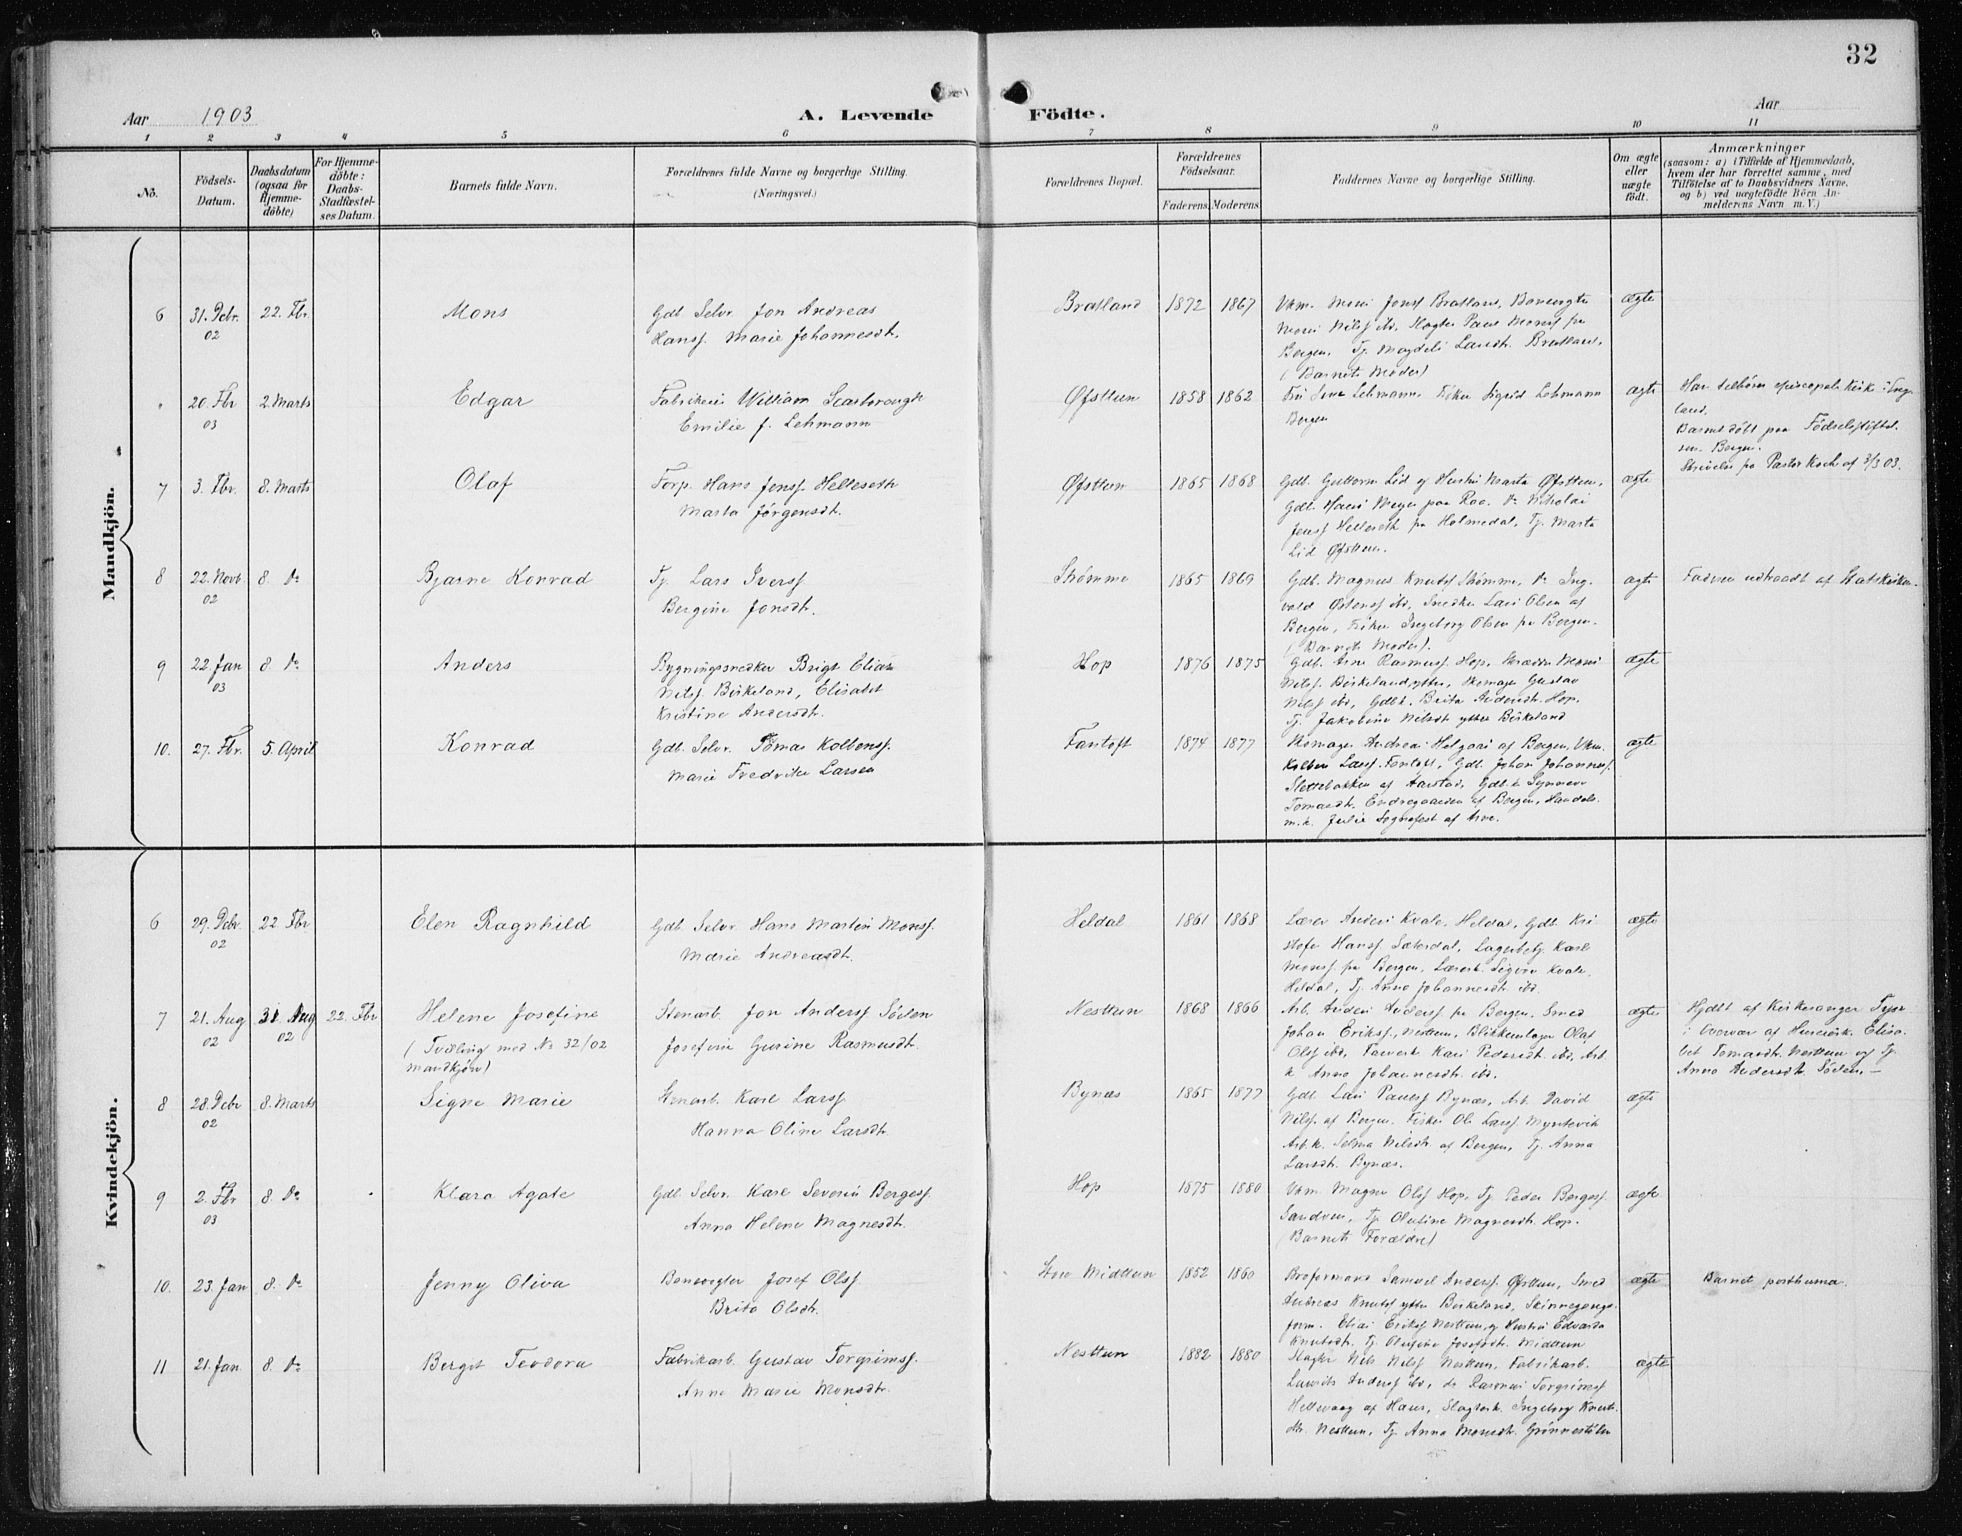 32
Aar 1903
A. Levende Födte.
Aar
1 2 3 4 5 6 7 8 9 10 11
No.
Födsels-Datum.
Daabsdatum (ogsaa for Hjemme-döbte)
For Hjemme-döbte: Daabs-Stadfæstel-ses Datum.
Barnets fulde Navn.
Forældrenes fulde Navne og borgerlige Stilling.
(Næringsvei.)
Forældrenes Bopæl.
Forældrenes Födselsaar.
Faderens. Moderens.
Faddernes Navne og borgerlige Stilling.
Om ægte eller uægte födt.
Anmærkninger
(saasom: a) i Tilfælde af Hjemmedaab,
hvem der har forrettet samme, med
Tilföielse af to Daabsvidners Navne.
og b) ved uægtefödte Börn An-
melderens Navn m. V.)
Mandkjön.
6 31. Dcbr. 02 22. Fbr. Mons
Gdb. Selvr. Jon Andreas
Hansf. Marie Johannesdt.
Bratland 1872 1867
Bergen, Tj. Magdeli Larsdt. Bratland,
(Barnets Moder)
ægte
" 20. Fbr 03 2. Marts Edgar
William Scarborough
Emilie f. Lehmann
Øfsttun 1858 1862
Lehmann, Sigrid Lehmann
Bergen
ægte
land.
Barnet döbt paa Fødselsstiftel-
sen. Bergen.
Pastor Koch af 3/3 03.
7 3. Fbr. 8. Marts Olaf
Forp. Hans Jensf. Helleseth
Marta Jørgensdt.
Øfsttun 1865 1868
Gdb. Guttorm Lid og Hustru Marta Øfsttun,
Jensf Helleseth fra Holmedal, Tj. Marta
Lid Øfsttun.
ægte
8 22. Novb. 02 8. Do Bjarne Konrad
Tj. Lars Iversf
Bergine Jonsdt.
Strømme 1865 1869
Gdb. Magnus Knutsf Strømme, Do Ing-
vald Østensf ibd, Snedker Lars Olsen af
Bergen, Ingeborg Olsen fra Bergen.
(Barnets Moder).
ægte
Faderen udtraadt af Statskirken.
9 22 Jan 03 8. Do Anders
Bygningssnedker Brigt Elias
Nilsf. Birkeland, Elisabet
Kristine Andersdt.
Hop 1876 1875
Gdb. Arne Rasmusf. Hop,
Nilsf. Birkeland ytter, Skomager Gustav
Nilsf ibd, Gdbk. Brita Hop.
Tj. Jakobine Nilsdt ytter Birkeland
ægte
10. 27. Fbr. 5. April Konrad
Gdb. Selvr. Tomas Kolbensf.
Marie Fredrike Larsen
Fantoft 1874 1877
Skomager Andreas Helgaas af Bergen,
Kolben Larsf. Fantoft, Gdb. Johan Johannesf.
Slettebakken af Aarstad, Gdbk Synneve
Tomasdt. Endregaarden af Bergen, Handels-
m.k. Julie Sognefest af Arne.
ægte
Kvindekjön.
6 29. Dcbr. 02 22 Fbr Elen Ragnhild
Gdb. Selvr. Hans Martin Monsf.
Marie Andreasdt.
Heldal 1861 1868
Lærer Anders Kvale, Heldal, Gdb. Kri
stofer Hansf Sæterdal, Lagerbetj. Karl
Monsf. fra Bergen, Lærerk. Sigvor Kvale
Heldal, Tj. Anna Johannesdt ibd.
ægte
7 21. Aug 02 31. Aug 02 22. Fbr Helene Josefine
(Tvilling med No 32/02
mandkjøn)
Stenarb. Jon Andersf Söilen
Josefine Gurine Rasmusdt.
Nesttun 1868 1866
Arb. Anders Andersf fra Bergen, Smed
Johan Eriksf., Nesttun, Blikkenslager Olaf
Olsf ibd, Kari Pedersdt ibd, Arb.
k. Anna Johannesdt. ibd.
ægte
Hjdöbt af Kirkesanger Tysse
i Overvær af Elisa-
bet Tomasdt. Nesttun og Tj.
Anna Andersdt. Söilen. —
8 28. Dcbr 02 8. Marts Signe Marie
Stenarb. Karl Larsf
Hanna Oline Larsdt.
Bynæs 1865 1877
Gdb. Lars Paulsf Bynæs, Arb. David
Nilsf. af Bergen. Fisker Ole Larsf Myrkevik
Arb.k. Selma Nilsdt. af Bergen, Tj. Anna
Larsdt. Bynæs.
ægte
9 2. Fbr 03 8. Do Klara Agate
Gdb. Selvr. Karl Severin Bergesf.
Anna Helene Magnesdt.
Hop 1875 1880
Magne Olsf Hop, Tj. Peder Bergesf.
Sandven, Tj. Olufine Magnesdt. Hop.
(Barnets Forældre)
ægte
10. 23. Jan 8. Do Jenny Oliva
Banevogter Josef Olsf.
Brita Olsdt.
Store Midttun 1852 1860
Broformand Samuel Andersf. Øfsttun, Smed
Andreas Knutsf ytter Birkeland, Skinnegangs-
form. Elias Eriksf Nesttun, og Hustru Edvarda
Knutsdt. Tj. Olufine Josefsdt. Midttun
ægte
Barnet posthuma.
11 21. Jan 8. Do Bergit Teodora
Fabrikarb. Gustav Torgrimsf.
Anne Marie Monsdt.
Nesttun 1882 1880
Slagter Nils Nilsf Nesttun, Fabrikarb.
Laurits Andersf ibd, do Rasmus Torgrimsf
Hellevaag af Haus, Slagterk. Ingeborg Knuts
dt. Nesttun, Tj. Anna Monsdt. Grönnestölen
ægte